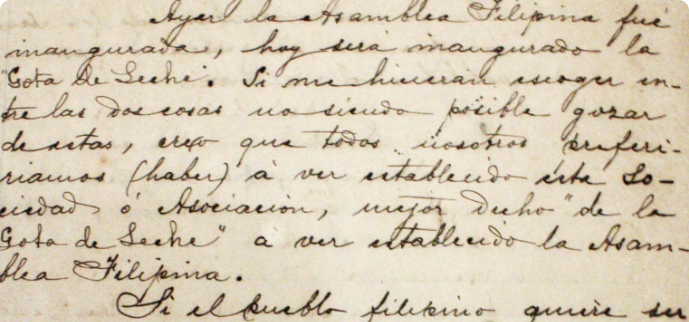 Ayer la Asamblea Filipina fué
inaugurada, hoy será inaugurado la
"Gota de Leche". Si me hicieran escoger en-
tre las dos cosas no siendo posible gozar
de estas, creo que todos nosotros preferi-
riamos (haber) á ver establecido ésta So-
ciedad ó Asociacion, mejor dicho "de la
Gota de Leche" á ver establecido la Asam-
blea Filipina.
Si el pueblo filipino quiere ser